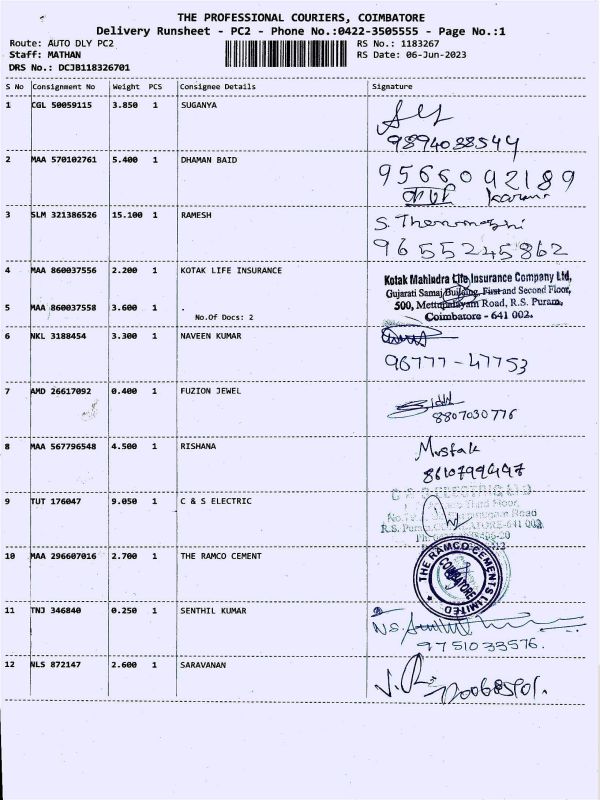 THE PROFESSIONAL COURIERS, COIMBATORE
Delivery Runsheet - PC2 - Phone No.:0422-3505555 - Page No.:1
Route: AUTO DLY PC2 RS No.: 1183267
Staff: MATHAN RS Date: 06-Jun-2023
DRS No.: DCJB118326701
S No Consignment No Weight PCS Consignee Details Signature
1 CGL 50059115 3.850 1 SUGANYA
9894038544
2 MAA 570102761 5.400 1 DHAMAN BAID
9566092189
3 SLM 321386526 15.100 1 RAMESH
9655245862
4 MAA 860037556 2.200 1 KOTAK LIFE INSURANCE
Kotak Mahindra Life Insurance Company Ltd,
Gujarati Samaj Building, First and Second Floor,
5 MAA 860037558 3.600 1 . 500, Mettupalayam Road, R.S. Puram,
No.Of Docs: 2 Coimbatore - 641 002.
6 NKL 3188454 3.300 1 NAVEEN KUMAR
96777-47753
7 AMD 26617092 0.400 1 FUZION JEWEL
8807030776
8 MAA 567796548 4.500 1 RISHANA
C & S ELECTRIC LTD
9 TUT 176047 9.050 1 C & S ELECTRIC
Third Floor,
Road
R.S. COIMBATORE-641 002
10 MAA 296607016 2.700 1 THE RAMCO CEMENT
THE RAMCO CEMENTS LIMITED
COIMBATORE
11 TNJ 346840 0.250 1 SENTHIL KUMAR
9751033576.
12 NLS 872147 2.600 1 SARAVANAN